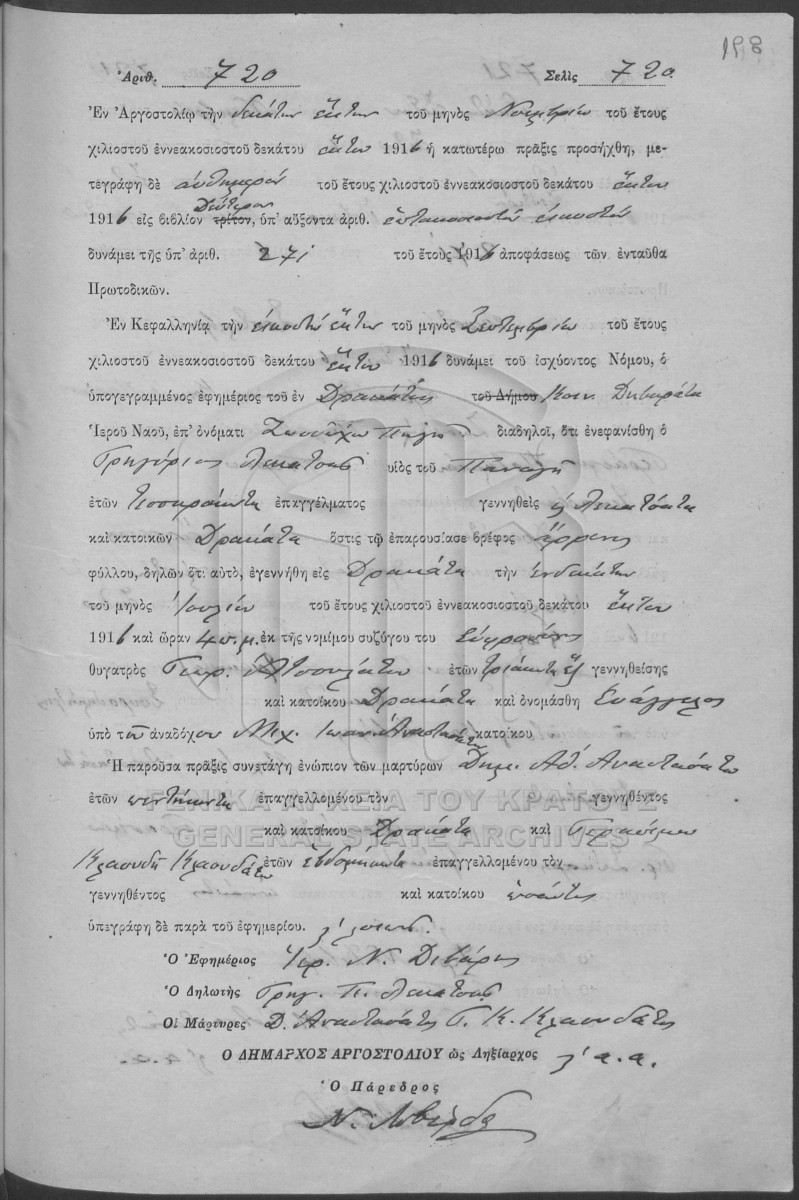 198
Ἀριθ. 720 Σελὶς 720
Ἐν Ἀργοστολίῳ τὴν δεκάτην ἕκτην τοῦ μηνὸς Νοεμβρίου τοῦ ἔτους
χιλιοστοῦ ἐννεακοσιοστοῦ δεκάτου ἕκτου 1916 ἡ κατωτέρω πρᾶξις προσήχθη, με-
τεγράφη δὲ αὐθημερόν τοῦ ἔτους χιλιοστοῦ ἐννεακοσιοστοῦ δεκάτου ἕκτου
Δεύτερον
1916 εἰς βιβλίον τρίτον, ὑπ' αὔξοντα ἀριθ. ἑπτακοσιοστὸν εἰκοστὸν
δυνάμει τῆς ὑπ' ἀριθ. 271 τοῦ ἔτους 1916 ἀποφάσεως τῶν ἐνταῦθα
Πρωτοδικῶν.
Ἐν Κεφαλληνίᾳ τὴν εἰκοστὴν ἕκτην τοῦ μηνὸς Σεπτεμβρίου τοῦ ἔτους
χιλιοστοῦ ἐννεακοσιοστοῦ δεκάτου ἕκτου 1916 δυνάμει τοῦ ἰσχύοντος Νόμου, ὁ
ὑπογεγραμμένος ἐφημέριος τοῦ ἐν Δρακάτα τοῦ Δήμου Κοιν. Διβαράτα
Ἱεροῦ Ναοῦ, ἐπ' ὀνόματι Ζωοδόχου Πηγῆς διαδηλοῖ, ὅτι ἐνεφανίσθη ὁ
Γρηγόριος Λεκατσᾶς υἱὸς τοῦ Παναγῆ
ἐτῶν τεσσαράκοντα ἐπαγγέλματος γεννηθεὶς ἐν Λεκατσάτα
καὶ κατοικῶν Δρακάτα ὅστις τῷ ἐπαρουσίασε βρέφος ἄρρενος
φύλλου, δηλῶν ὅτι αὐτὸ, ἐγεννήθη εἰς Δρακάτα τὴν ἑνδεκάτην
τοῦ μηνὸς Ἰουλίου τοῦ ἔτους χιλιοστοῦ ἐννεακοσιοστοῦ δεκάτου ἕκτου
1916 καὶ ὥραν 4 π.μ. ἐκ τῆς νομίμου συζύγου του Εὐφροσύνης
θυγατρὸς Γεωρ. ἐτῶν τριάκοντα ἓξ γεννηθείσης
καὶ κατοίκου Δρακάτα καὶ ὀνομάσθη Εὐάγγελος
ὑπὸ τοῦ ἀναδόχου Μιχ. Ἰωάν. Ἀναστασάτου κατοίκου
Ἡ παροῦσα πρᾶξις συνετάγη ἐνώπιον τῶν μαρτύρων Δημ. Ἀθ. Ἀναστασάτου
ἐτῶν πεντήκοντα ἐπαγγελλομένου τὸν γεννηθέντος
ΓΕΝΙΚΑ ΑΡΧΕΙΑ ΤΟΥ ΚΡΑΤΟΥΣ
GENERAL STATE ARCHIVES
καὶ κατοίκου Δρακάτα καὶ Γερασίμου
Κλαουδῆ Κλαουδάτου ἐτῶν ἑβδομήκοντα ἐπαγγελλομένου τὸν
γεννηθέντος καὶ κατοίκου
ὑπεγράφη δὲ παρὰ τοῦ ἐφημερίου.
Ὁ Ἐφημέριος Ἱερ. Ν. Διβάρης
Ὁ Δηλωτὴς Γρηγ. Π. Λεκατσᾶς
Οἱ Μάρτυρες Δ. Ἀναστασάτος Γ. Κ. Κλαουδάτος
Ὁ ΔΗΜΑΡΧΟΣ ΑΡΓΟΣΤΟΛΙΟΥ ὡς Ληξίαρχος α.α.
Ὁ Πάρεδρος